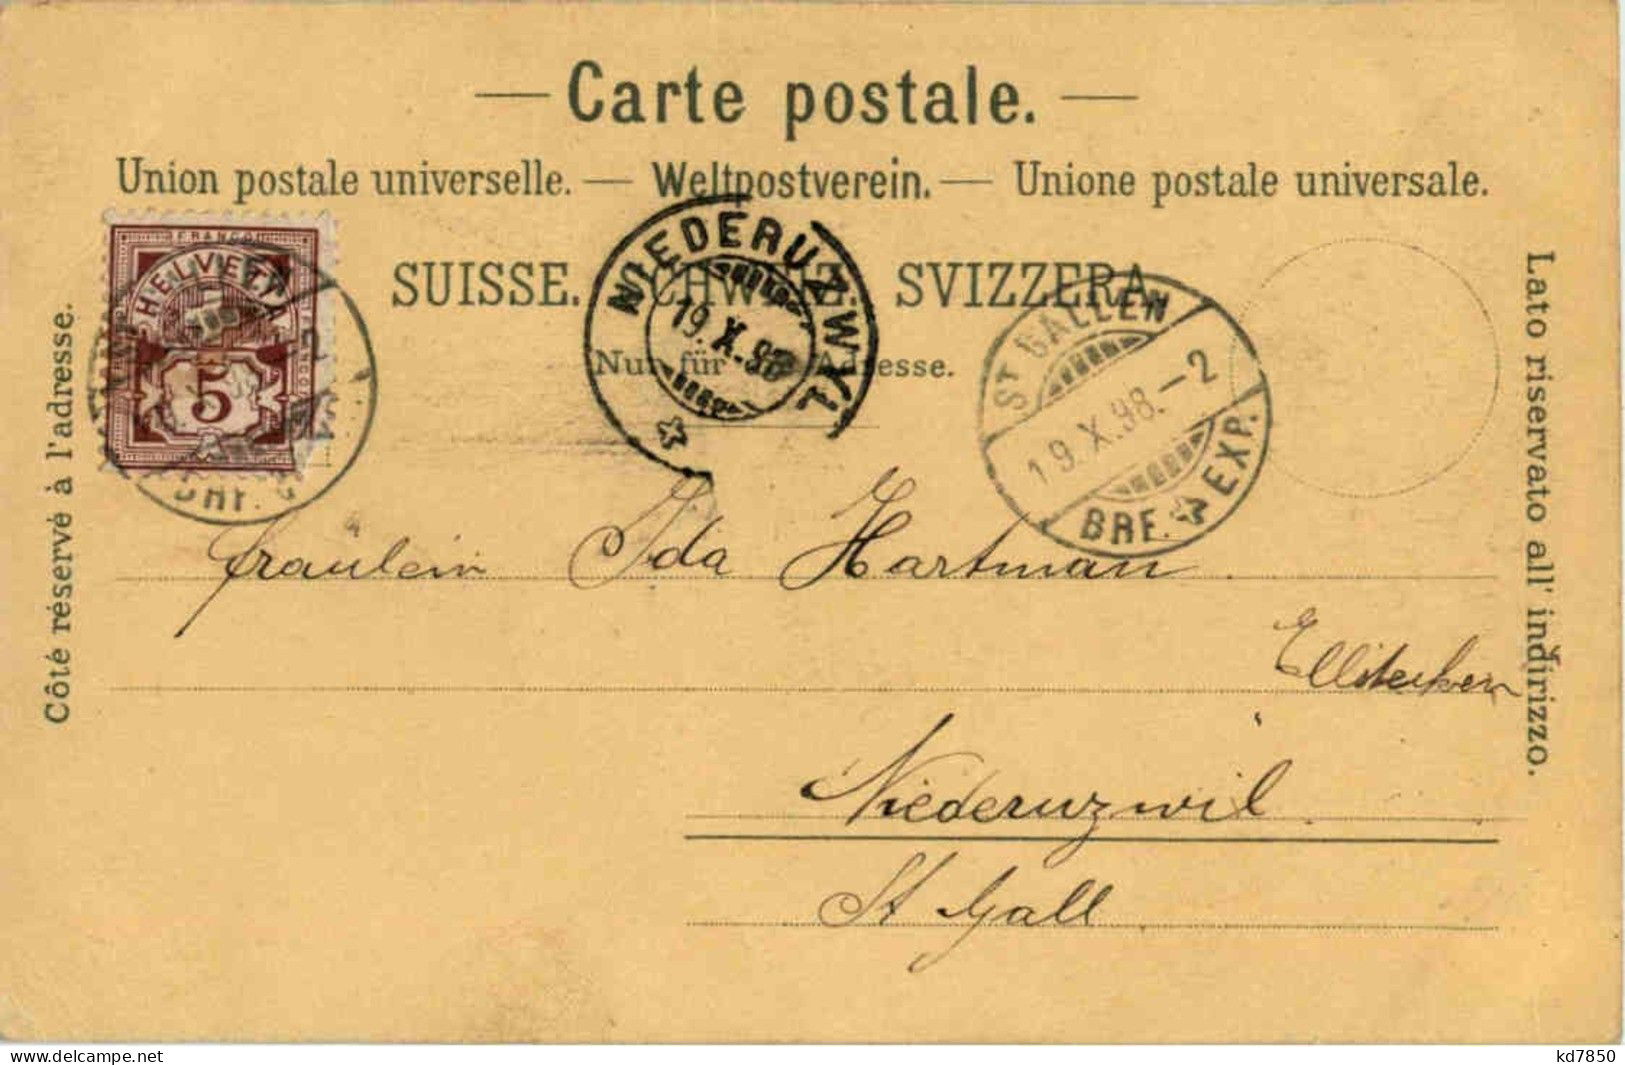 Carte postale.
Union postale universelle. — Weltpostverein. — Unione postale universale.
FRANCO
HELVETIA
5
SUISSE. SCHWEIZ. SVIZZERA.
Nur für die Adresse.
NIEDERUZWYL
19.X.98
ST GALLEN
19.X.98.-2
BRF. EXP.
Côté réservé à l'adresse.
Lato riservato all' indirizzo.
Fräulein Ida Hartman
Niederuzwil.
St Gall
www.delcampe.net
kd7850